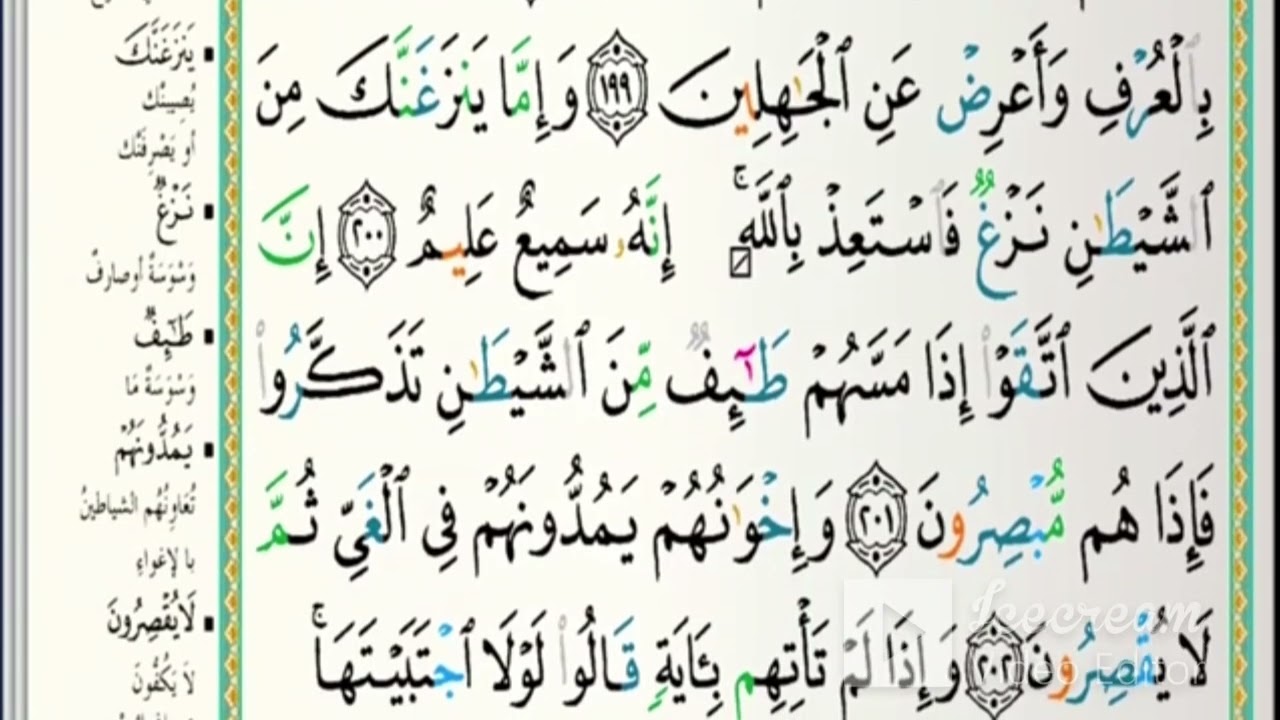 بِٱلْعُرْفِ وَأَعْرِضْ عَنِ ٱلْجَٰهِلِينَ ١٩٩ وَإِمَّا يَنزَغَنَّكَ مِنَ
ٱلشَّيْطَٰنِ نَزْغٌ فَٱسْتَعِذْ بِٱللَّهِ ۚ إِنَّهُۥ سَمِيعٌ عَلِيمٌ ٢٠٠ إِنَّ
ٱلَّذِينَ ٱتَّقَوْا۟ إِذَا مَسَّهُمْ طَٰٓئِفٌ مِّنَ ٱلشَّيْطَٰنِ تَذَكَّرُوا۟
فَإِذَا هُم مُّبْصِرُونَ ٢٠١ وَإِخْوَٰنُهُمْ يَمُدُّونَهُمْ فِى ٱلْغَىِّ ثُمَّ
لَا يُقْصِرُونَ ٢٠٢ وَإِذَا لَمْ تَأْتِهِم بِـَٔايَةٍ قَالُوا۟ لَوْلَا ٱجْتَبَيْتَهَا ۚ
يَنزَغَنَّكَ
يُصِيبَنَّكَ
أو يَصْرِفَنَّكَ
نَزْغٌ
وَسْوَسَةٌ أوصارفٌ
طَٰٓئِفٌ
وَسْوَسَةٌ مَا
يَمُدُّونَهُمْ
تُعَاوِنُهُم الشياطينُ
بالإغواءِ
لَا يُقْصِرُونَ
لَا يَكُفُّونَ
Icecream
Video Editor